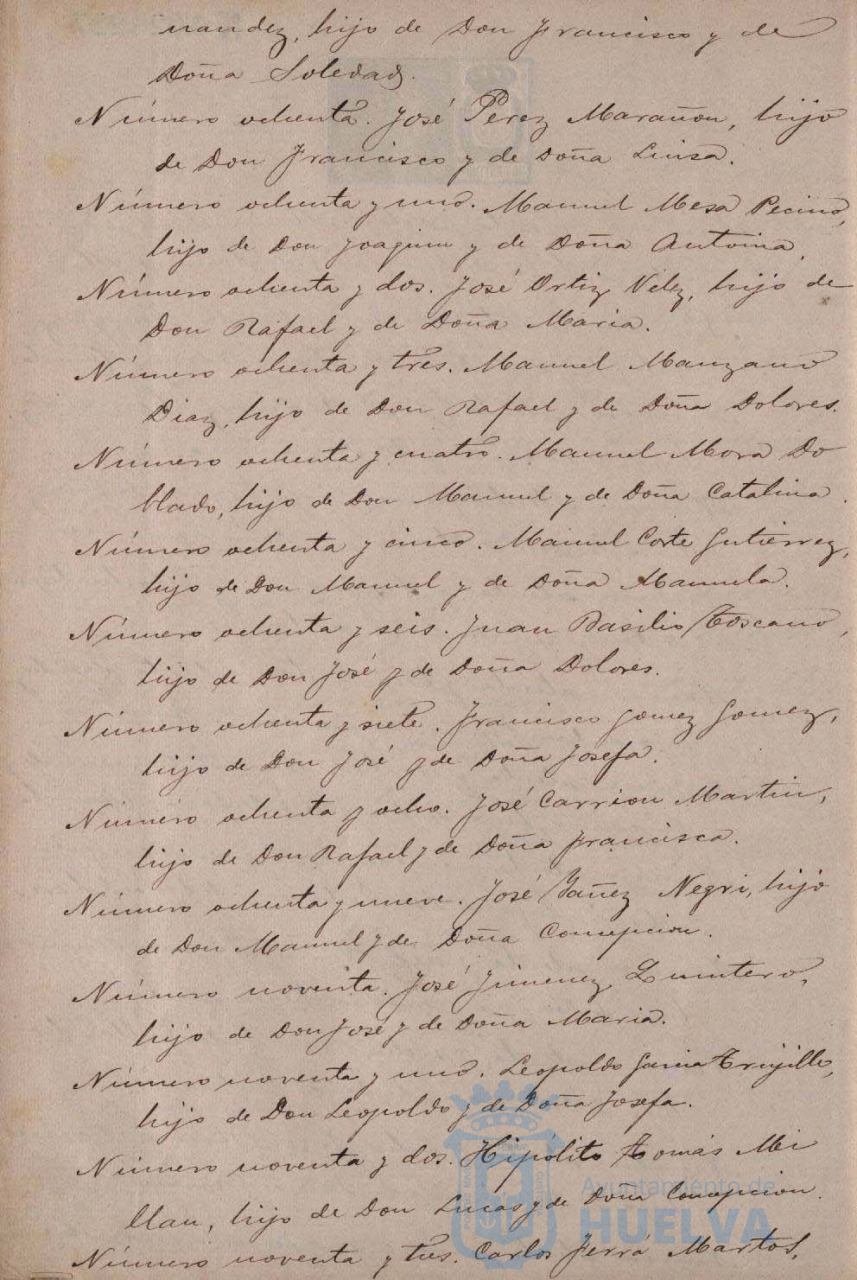 nandez, hijo de Don Francisco y de
Doña Soledad.
Número ochenta. José Perez Marañon, hijo
de Don Francisco y de Doña Luisa.
Número ochenta y uno. Manuel Mesa Pecino,
hijo de Don Joaquin y de Doña Antonia.
Número ochenta y dos. José Ortiz Velez, hijo de
Don Rafael y de Doña Maria.
Número ochenta y tres. Manuel Manzano
Diaz, hijo de Don Rafael y de Doña Dolores.
Número ochenta y cuatro. Manuel Mora Do
blado, hijo de Don Manuel y de Doña Catalina.
Número ochenta y cinco. Manuel Corte Gutierrez,
hijo de Don Manuel y de Doña Manuela.
Número ochenta y seis. Juan Basilio Toscano,
hijo de Don José y de Doña Dolores.
Número ochenta y siete. Francisco Gomez Gomez,
hijo de Don José y de Doña Josefa.
Número ochenta y ocho. José Carrion Martin,
hijo de Don Rafael y de Doña Francisca.
Número ochenta y nueve. José Yañez Negri, hijo
de Don Manuel y de Doña Concepcion.
Número noventa. José Jimenez Quintero,
hijo de Don José y de Doña Maria.
Número noventa y uno. Leopoldo Garcia Trujillo,
hijo de Don Leopoldo y de Doña Josefa.
Número noventa y dos. Hipólito Tomás Mi
llan, hijo de Don Lucas y de Doña Concepcion.
Número noventa y tres. Carlos Serra Martos,
Ayuntamiento de
HUELVA